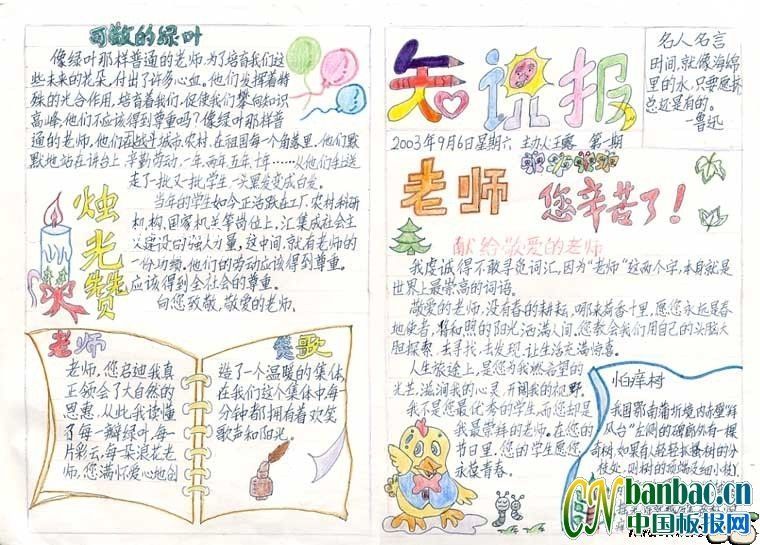 可敬的绿叶
像绿叶那样普通的老师,为了培育我们这
些未来的花朵,付出了许多心血。他们发挥着特
殊的光合作用,培育着我们,促使我们攀向知识
高峰,他们不应该得到尊重吗?像绿叶那样普
通的老师,他们在战斗城市、农村,在祖国每一个角落里。他们默
默地站在讲台上,辛勤劳动,一年两年五年十年……从他们手上送
走了一批又一批学生,一头黑发变成白发。
当年的学生如今正活跃在工厂、农村、科研
机构、国家机关等岗位上,汇集成社会主
义建设的强大力量,这中间,就有老师的
一份功绩。他们的劳动应该得到尊重。
应该得到全社会的尊重。
向您致敬,敬爱的老师。
烛光赞
老师
老师,您启迪我真
正领会了大自然的
恩惠,从此我读懂
了每一瓣绿叶,每一
片彩云,每朵浪花老
师,您满怀爱心地创
赞歌
造了一个温暖的集体,
在我们这个集体中每一
分钟都拥有着欢笑
歌声和阳光。
知识报
名人名言
时间,就像海绵
里的水,只要愿挤,
总还是有的。
—鲁迅
2003年9月6日星期六 主办人:王露 第一期
老师 您辛苦了!
献给敬爱的老师
我虔诚得不敢寻觅词汇,因为“老师”这两个字,本身就是
世界上最崇高的词语。
敬爱的老师,没有春的耕耘,哪来荷香十里,愿您永远是春
地使者,将和照的阳光洒满人间。您教会我们用自己的头脑大
胆探索,去寻找,去发现,让生活充满惊喜。
人生旅途上,是您为我燃
希望的
光芒,滋润我的心灵,开阔我的视野。
我不是您最优秀的学生,而您却是
我最崇拜的老师。在您的
节日里,您的学生愿您
永葆青春。
怕痒树
我国鄂南蒲圻境内赤壁“拜
风台”左侧的碑廊外有一棵
奇树,如果有人轻轻抓搔树的分
枝处,则树的顶端及细小枝
CN banbao.cn
中国板报网